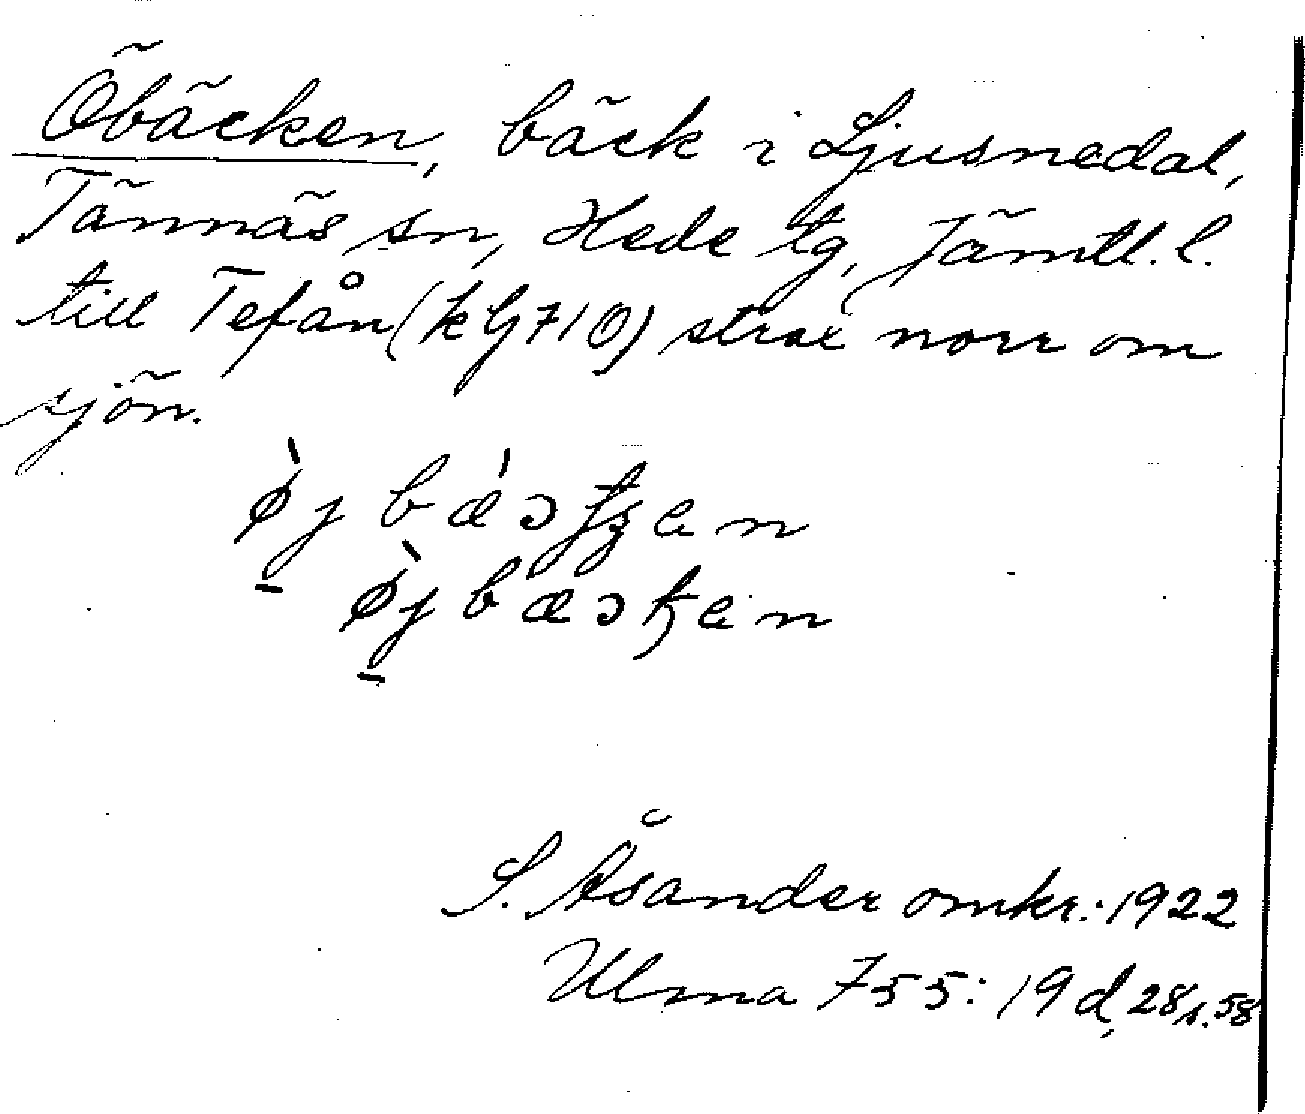 Öbäcken, bäck i Ljusnedal,
Tännäs sn, Hede tg, Jämtl. l.
till Tefån (kG710) strax norr om
sjön.
S. Åsander omkr. 1922
Ulma 755: 19 d, 28/1.58